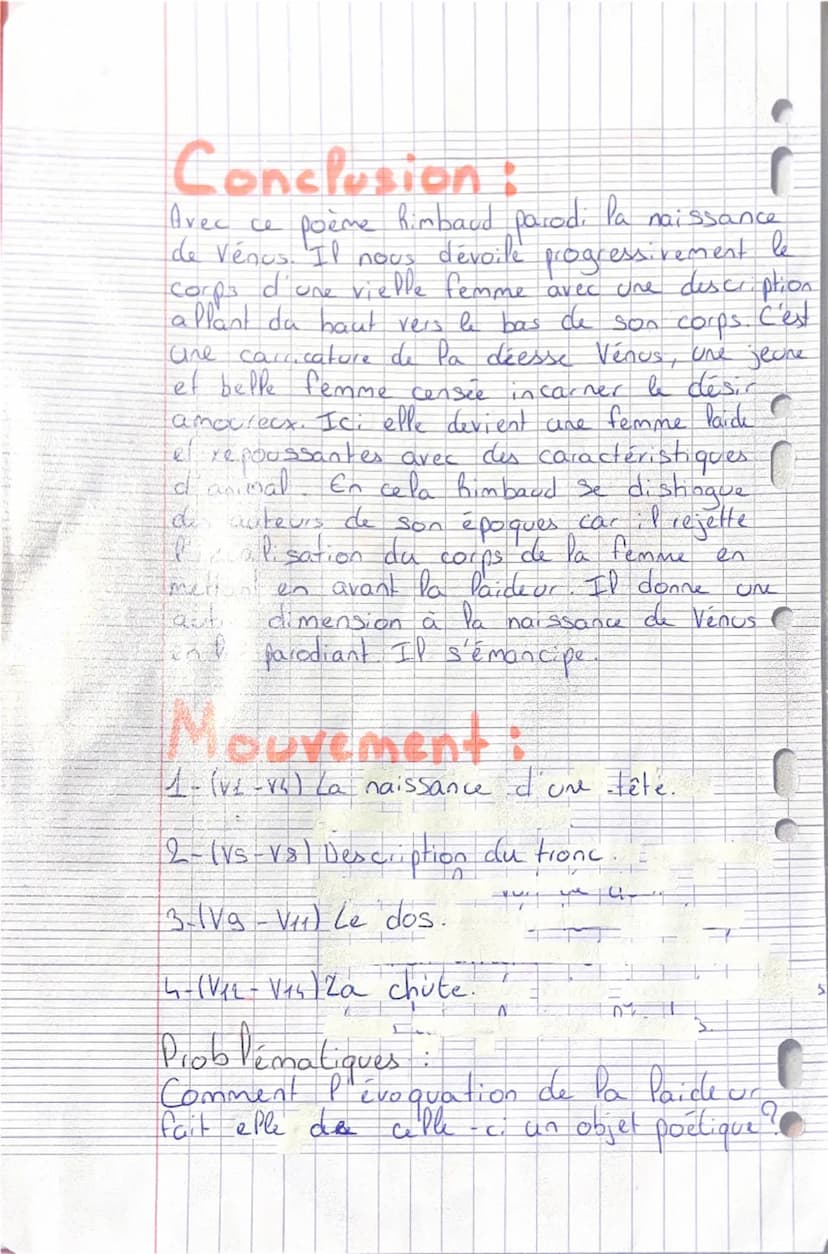 Conclusion :
Avec ce poème Rimbaud parodi la naissance
de Vénus. Il nous dévoile progressivement le
corps d'une vielle femme avec une description
allant du haut vers le bas de son corps. C'est
une carricature de la déesse Vénus, une jeune
et belle femme censée incarner le désir
amoureux. Ici elle devient une femme laide
et repoussantes avec des caractéristiques
d'animal. En cela Rimbaud se distingue
des auteurs de son époques car il rejette
l'idéalisation du corps de la femme en
mettant en avant la laideur. Il donne une
autre dimension à la naissance de Vénus
en la parodiant. Il s'émancipe.
Mouvement :
1-(V1-V4) La naissance d'une tête.
2-(V5-V8) Description du tronc.
3-(V9-V11) Le dos.
4-(V12-V14) La chute.
Problématiques :
Comment l'évoquation de la laideur
fait elle de celle-ci un objet poétique ?